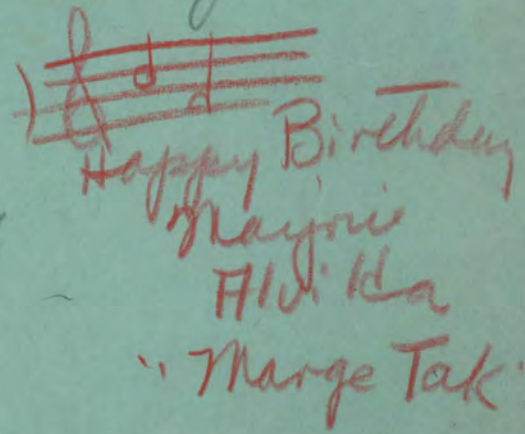 Happy Birthday
Marjorie
Alvilda
"Marge Tak"